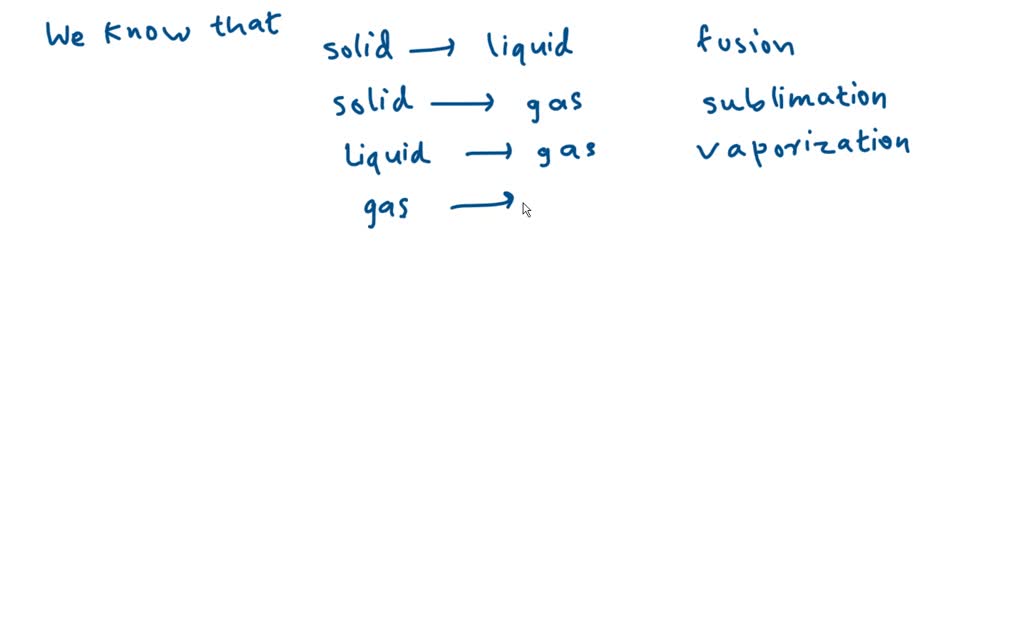 We know that solid → liquid fusion
solid → gas sublimation
liquid → gas vaporization
gas →